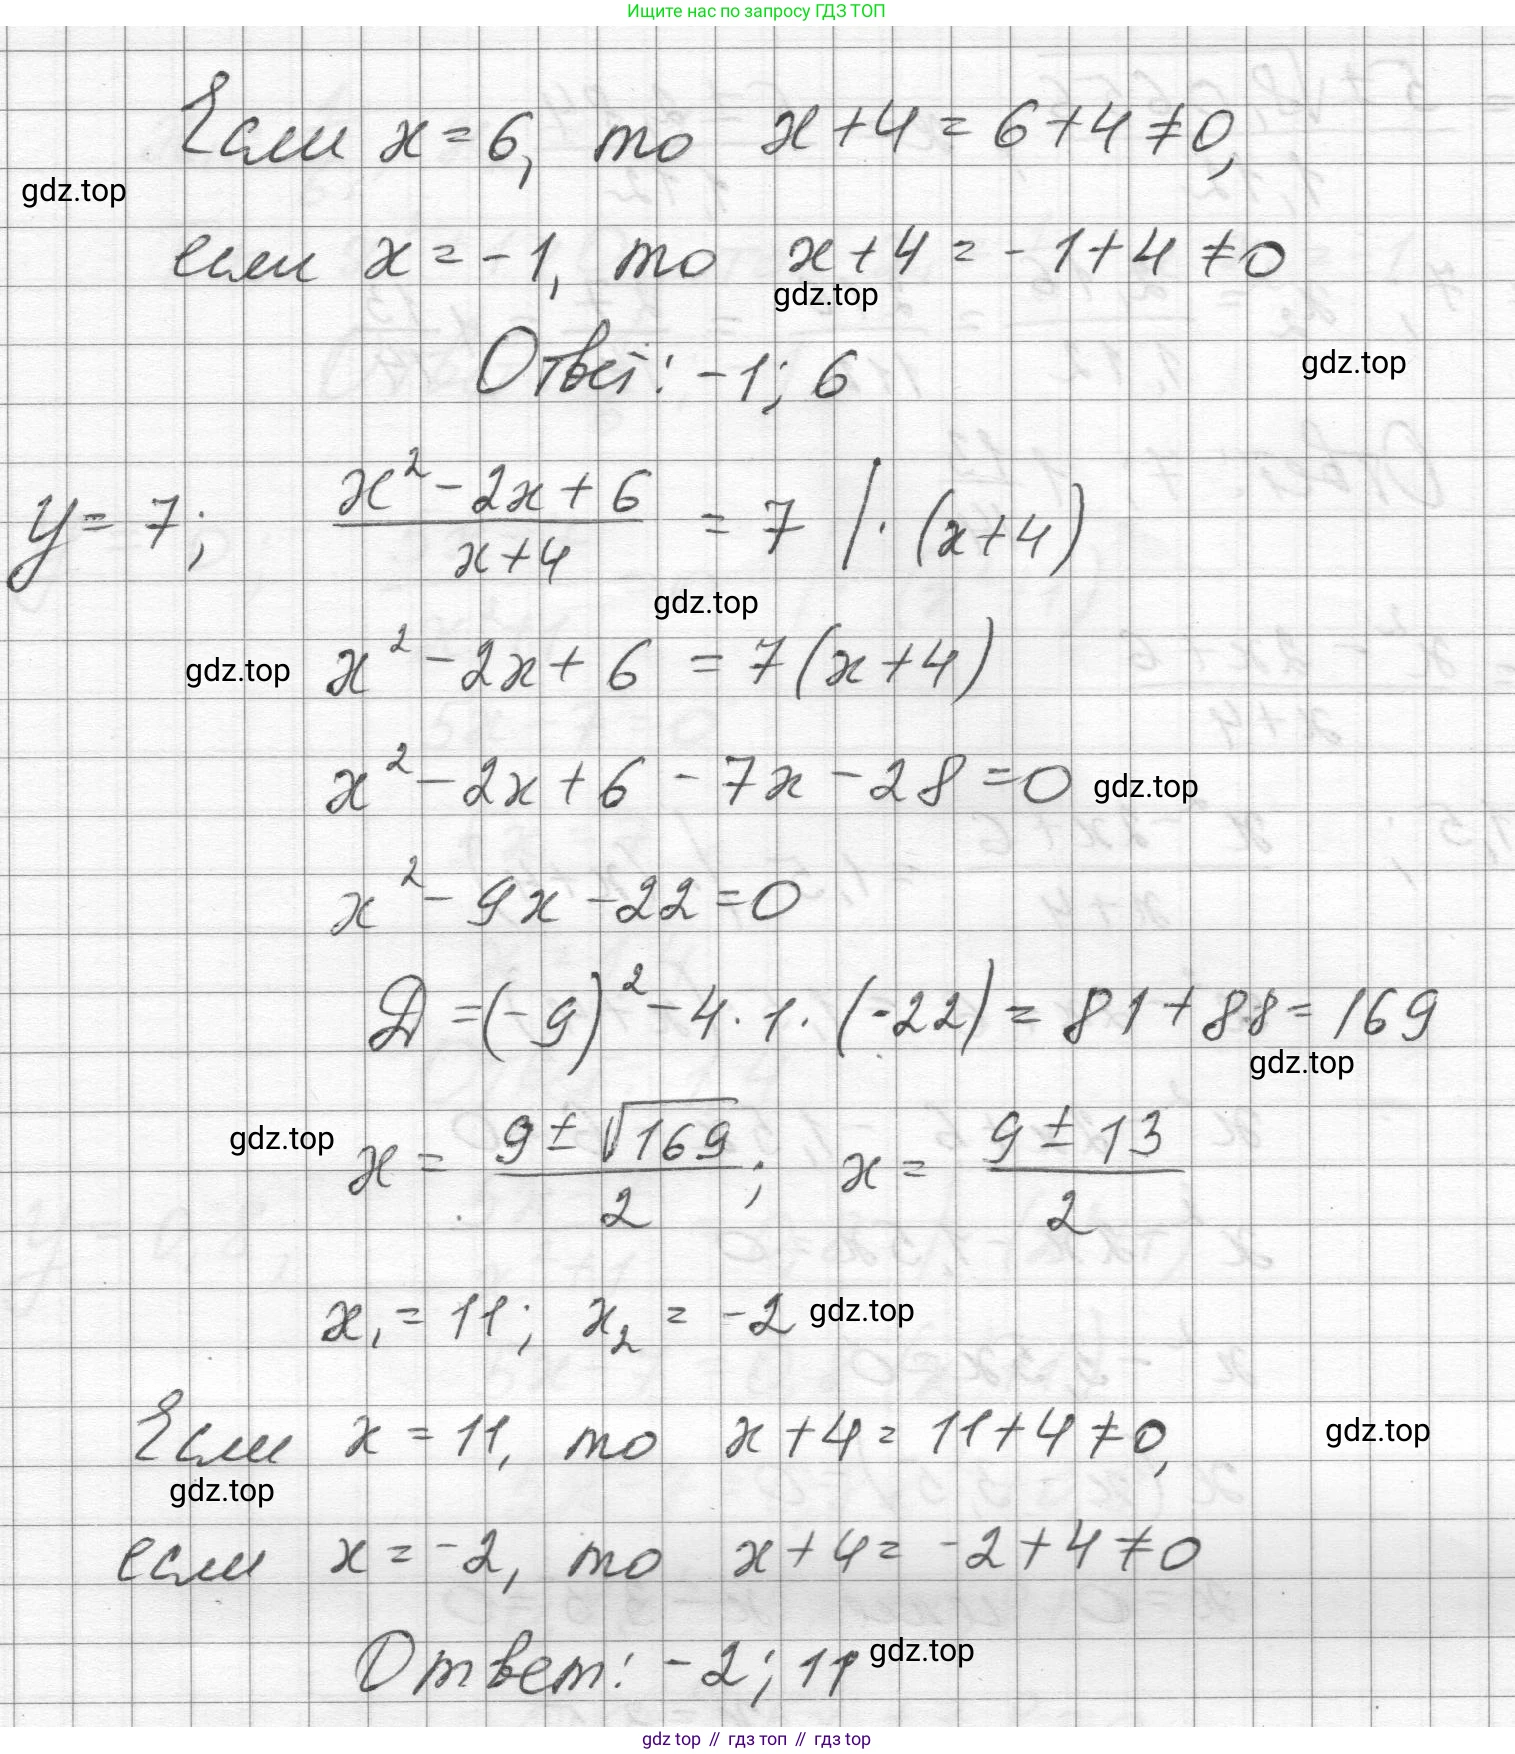 Ищите нас по запросу ГДЗ ТОП
Если x = 6, то x + 4 = 6 + 4 ≠ 0,
gdz.top
если x = -1, то x + 4 = -1 + 4 ≠ 0
gdz.top
Ответ: -1; 6
gdz.top
y = 7; (x² - 2x + 6)/(x + 4) = 7 | · (x + 4)
gdz.top
gdz.top x² - 2x + 6 = 7(x + 4)
x² - 2x + 6 - 7x - 28 = 0 gdz.top
x² - 9x - 22 = 0
D = (-9)² - 4 · 1 · (-22) = 81 + 88 = 169
gdz.top
gdz.top x = (9 ± √169)/2; x = (9 ± 13)/2
x₁ = 11; x₂ = -2 gdz.top
Если x = 11, то x + 4 = 11 + 4 ≠ 0, gdz.top
gdz.top
если x = -2, то x + 4 = -2 + 4 ≠ 0
Ответ: -2; 11 gdz.top
gdz top // гдз топ // гдз top